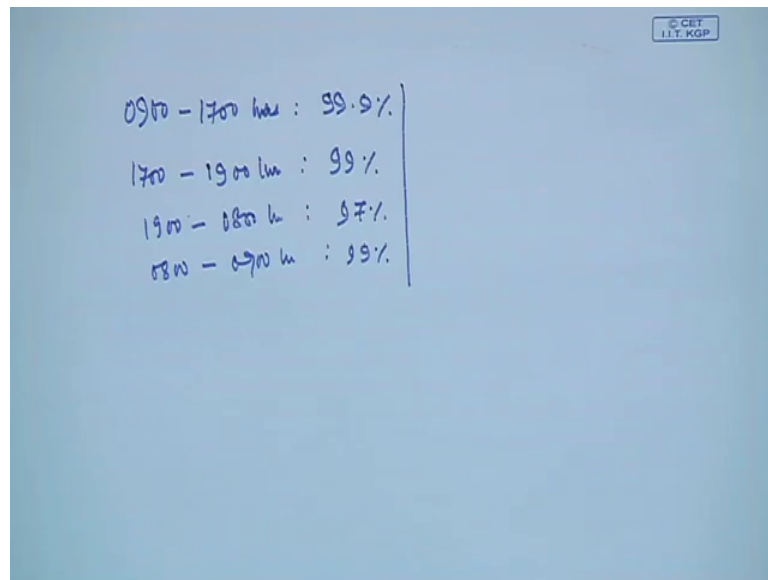 © CET
I.I.T. KGP
0900 - 1700 hrs : 99.9%.
1700 - 1900 hrs : 99%.
1900 - 0800 h : 97%.
0800 - 0900 h : 99%.